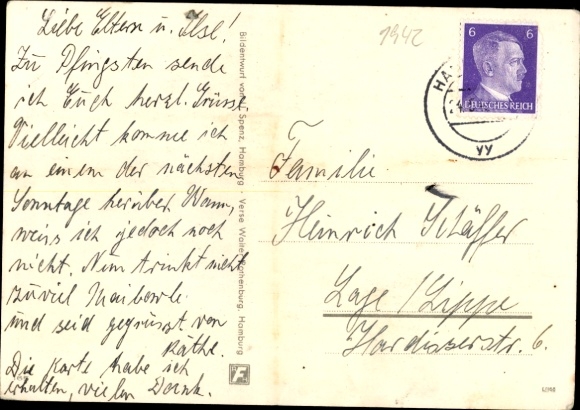 Liebe Eltern u. Ilse!
Zu Pfingsten sende
ich Euch herzl. Grüsse.
Vielleicht komme ich
an einem der nächsten
Sonntage herüber. Wann,
weiss ich jedoch noch
nicht. Nun trinkt nicht
zuviel Maibowle
und seid gegrüsst von
Käthe.
Die Karte habe ich
erhalten, vielen Dank.
Bildentwurf von Spenz, Hamburg - Verse Walter Rothenburg, Hamburg
1942
6 6
DEUTSCHES REICH
HA
yy
Familie
Heinrich Schäffer
Lage/Lippe
str. 6.